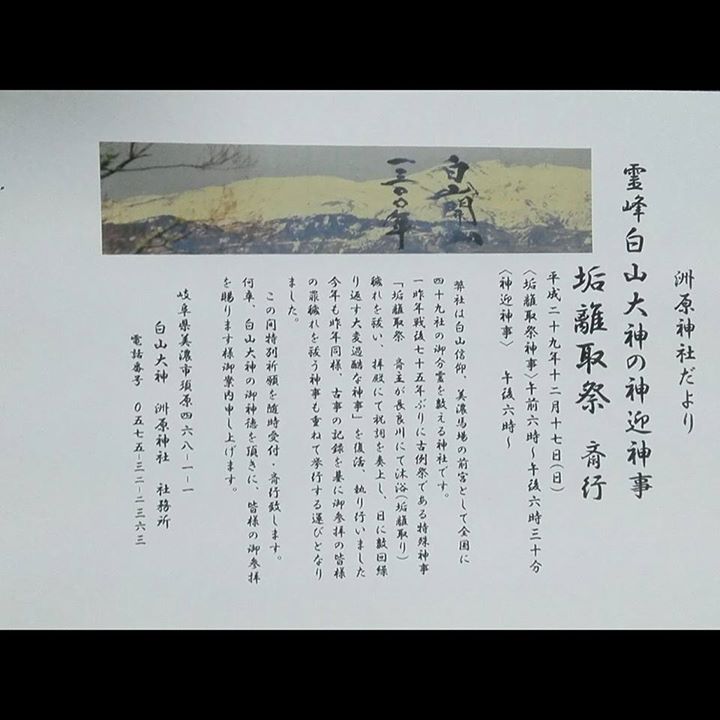 洲原神社だより
霊峰白山大神の神迎神事
垢離取祭 斎行
平成二十九年十二月十七日(日)
〈垢離取祭神事〉午前六時~午後六時三十分
〈神迎神事〉 午後六時~
白山開山
一三〇〇年
弊社は白山信仰、美濃馬場の前宮として全国に
四十九社の御分霊を数える神社です。
一昨年戦後七十五年ぶりに古例祭である特殊神事
「垢離取祭 斎主が長良川にて沐浴(垢離取り)
穢れを祓い、拝殿にて祝詞を奏上し、日に数回繰
り返す大変過酷な神事」を復活、執り行いました
今年も昨年同様、古事の記録を基に御参拝の皆様
の罪穢れを祓う神事も重ねて挙行する運びとなり
ました。
この間特別祈願を随時受付・斎行致します。
何卒、白山大神の御神徳を頂きに、皆様の御参拝
を賜ります様御案内申し上げます。
岐阜県美濃市須原四六八-一-一
白山大神 洲原神社 社務所
電話番号 0五七五-三二-二三六三